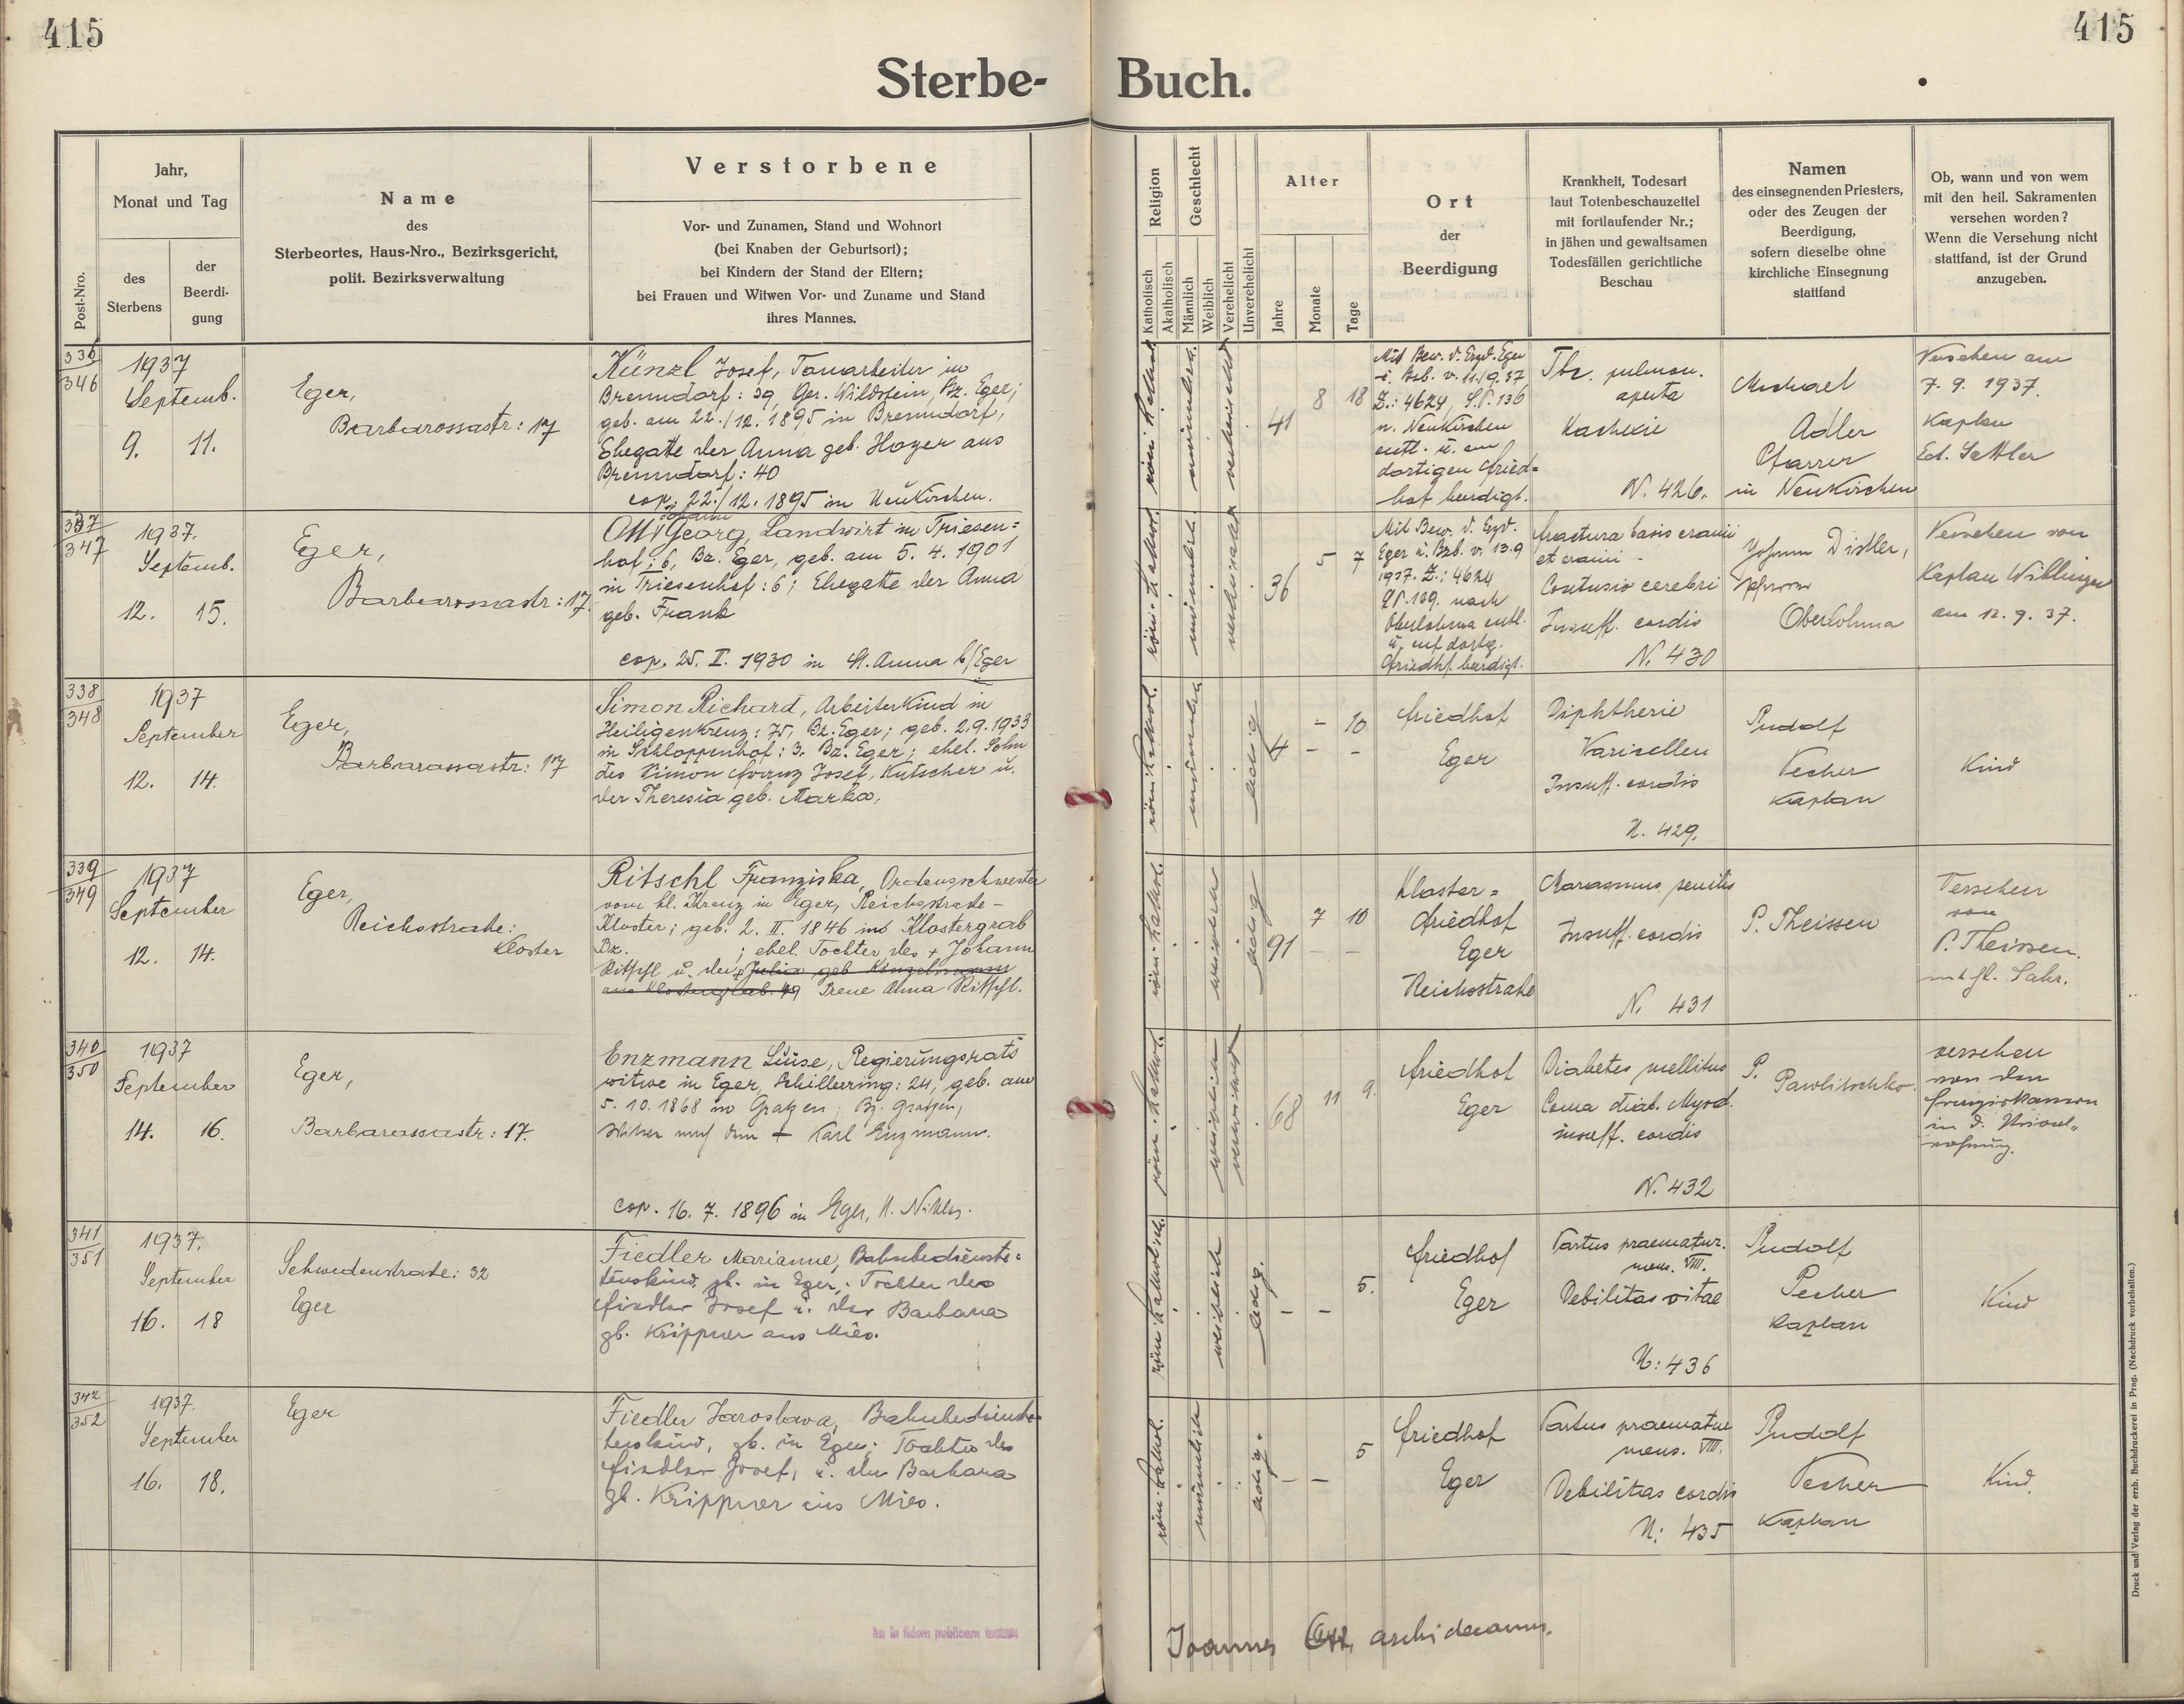 415
415
Sterbe-
Buch.
Post-Nro.
Jahr,
Monat und Tag
des
Sterbens
der
Beerdi-
gung
Name
des
Sterbeortes, Haus-Nro., Bezirksgericht,
polit. Bezirksverwaltung
Verstorbene
Vor- und Zunamen, Stand und Wohnort
(bei Knaben der Geburtsort);
bei Kindern der Stand der Eltern;
bei Frauen und Witwen Vor- und Zuname und Stand
ihres Mannes.
Religion
Katholisch
Akatholisch
Geschlecht
Männlich
Weiblich
Verehelicht
Unverehelicht
Alter
Jahre
Monate
Tage
Ort
der
Beerdigung
Krankheit, Todesart
laut Totenbeschauzettel
mit fortlaufender Nr.;
in jähen und gewaltsamen
Todesfällen gerichtliche
Beschau
Namen
des einsegnenden Priesters,
oder des Zeugen der
Beerdigung,
sofern dieselbe ohne
kirchliche Einsegnung
stattfand
Ob, wann und von wem
mit den heil. Sakramenten
versehen worden?
Wenn die Versehung nicht
stattfand, ist der Grund
anzugeben.
336
346
1937
Septemb.
9. 11.
Eger,
Barbarossastr: 17
Künzl Josef, Tonarbeiter in
Brenndorf: 39, Ger. Wildstein, Bz. Eger;
geb. am 22./12. 1895 in Brenndorf,
Ehegatte der Anna geb. Hoyer aus
Brenndorf: 40
cop. 22./12. 1895 in Neukirchen.
röm. kathol.
männlich
verheiratet
41
8
18
Mit Bew. d.
v. 11./9. 37
Z.: 4624, S.P. 136
n. Neukirchen
entl. u. am
dortigen Fried=
hof beerdigt.
Tbc. pulmon.
aperta
Kachexie
N. 426.
Michael
Adler
Pfarrer
in Neukirchen
Versehen am
7. 9. 1937.
Kaplan
Ed. Sattler
337
347
1937.
Septemb.
12. 15.
Eger,
Barbarossastr: 17.
Johann
Ott Georg, Landwirt in Triesen=
hof: 6, Bz. Eger, geb. am 5. 4. 1901
in Triesenhof: 6; Ehegatte der Anna
geb. Frank
cop. 25. II. 1930 in St. Anna b/Eger
röm. kathol.
männlich
verheiratet
36
5
7
Mit Bew. d.
Eger v. 13.9
1937. Z.: 4624
S.P. 139. nach
Oberlohma entl.
u. auf dortg.
Friedhf. beerdigt.
fractura basis cranii
et cranii -
Contusio cerebri
Insuff. cordis
N. 430
Johann Distler,
Pfarrer
Oberlohma
Versehen von
Kaplan Willinger
am 12. 9. 37.
338
348
1937
September
12. 14.
Eger,
Barbarossastr: 17
Simon Richard, Arbeiterkind in
Heiligenkreuz: 75, Bz. Eger; geb. 2.9.1933
in Schloppenhof: 3. Bz. Eger; ehel. Sohn
des Simon Franz Josef, Kutscher u.
der Theresia geb. Marka,
röm. kathol.
männlich
ledig
4
- 10
- -
Friedhof
Eger
Diphtherie
Varicellen
Insuff. cordis
N. 429.
Rudolf
Pecher
Kaplan
Kind
339
349
1937
September
12. 14.
Eger,
Reichsstrasse:
Kloster
Ritschl Franziska, Ordensschwester
vom hl. Kreuz in Eger, Reichsstrasse-
Kloster; geb. 2. II. 1846 in Klostergrab
Bz. ; ehel. Tochter des + Johann
Ritschl u. der Julia geb
aus Klostergrab. 49 Irene Anna Ritschl.
röm. kathol.
weiblich
ledig
91
7
10
- -
Kloster=
friedhof
Eger
Reichsstrasse
Marasmus senilis
Insuff. cordis
N. 431
P. Theissen
Versehen
von
P. Theissen.
mit hl. Sakr.
340
350
1937
September
14. 16.
Eger,
Barbarossastr: 17.
Enzmann Luise, Regierungsrats
witwe in Eger, Schillerring: 24, geb. am
5. 10. 1868 in Gratzen, Bz. Gratzen,
Witwe nach dem + Karl Enzmann.
cop. 16. 7. 1896 in Eger, St. Niklas.
röm. kathol.
weiblich
verwitwet
68
11
9.
Friedhof
Eger
Diabetes mellitus
Coma diab. Myod.
insuff. cordis
N. 432
P. Pawlitschko.
versehen
von den
Franziskanern
in d. Privat-
wohnung.
341
351
1937.
September
16. 18
Schwedenstrasse: 32
Eger
Fiedler Marianne, Bahnbedienste-
tenskind, gb. in Eger; Tochter des
Fiedler Josef u. der Barbara
gb. Krippner aus Mies.
röm. katholisch
weiblich
ledig.
- -
5.
Friedhof
Eger
Partus praematur.
mens. VIII.
Debilitas vitae
N: 436
Rudolf
Pecher
Kaplan
Kind
342
352
1937.
September
16. 18.
Eger
Fiedler Jaroslava, Bahnbedienste-
tenskind, gb. in Eger; Tochter des
Fiedler Josef, u. der Barbara
gb. Krippner aus Mies.
röm. kathol.
männlich
ledig.
- -
5
Friedhof
Eger
Partus praematur
mens. VIII.
Debilitas cordis
N: 435
Rudolf
Pecher
Kaplan
Kind.
in fidem publicam
Joannes Ott, archidecanus.
Druck und Verlag der erzb. Buchdruckerei in Prag. (Nachdruck vorbehalten.)